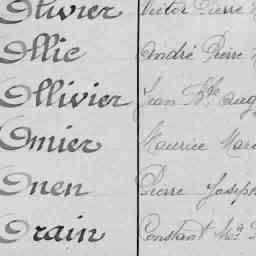 Olivier Victor Pierre
Ollic André Pierre
Ollivier Jean Bte Aug
Omier Maurice Mari
Onen Pierre Joseph
Orain Constant Ma